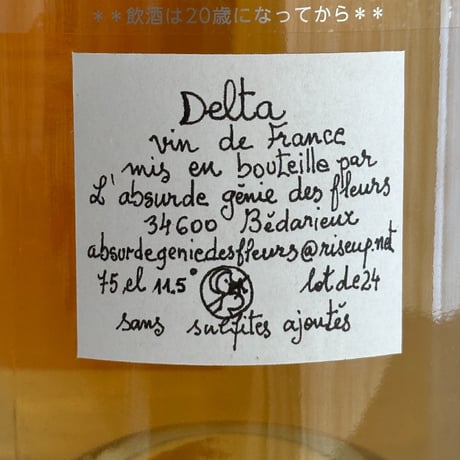 ＊＊飲酒は20歳になってから＊＊
Delta
vin de France
mis en bouteille par
L'absurde génie des fleurs
34600 Bédarieux
absurdegeniedesfleurs@riseup.net
75 cl 11.5° lot de 24
sans sulfites ajoutés